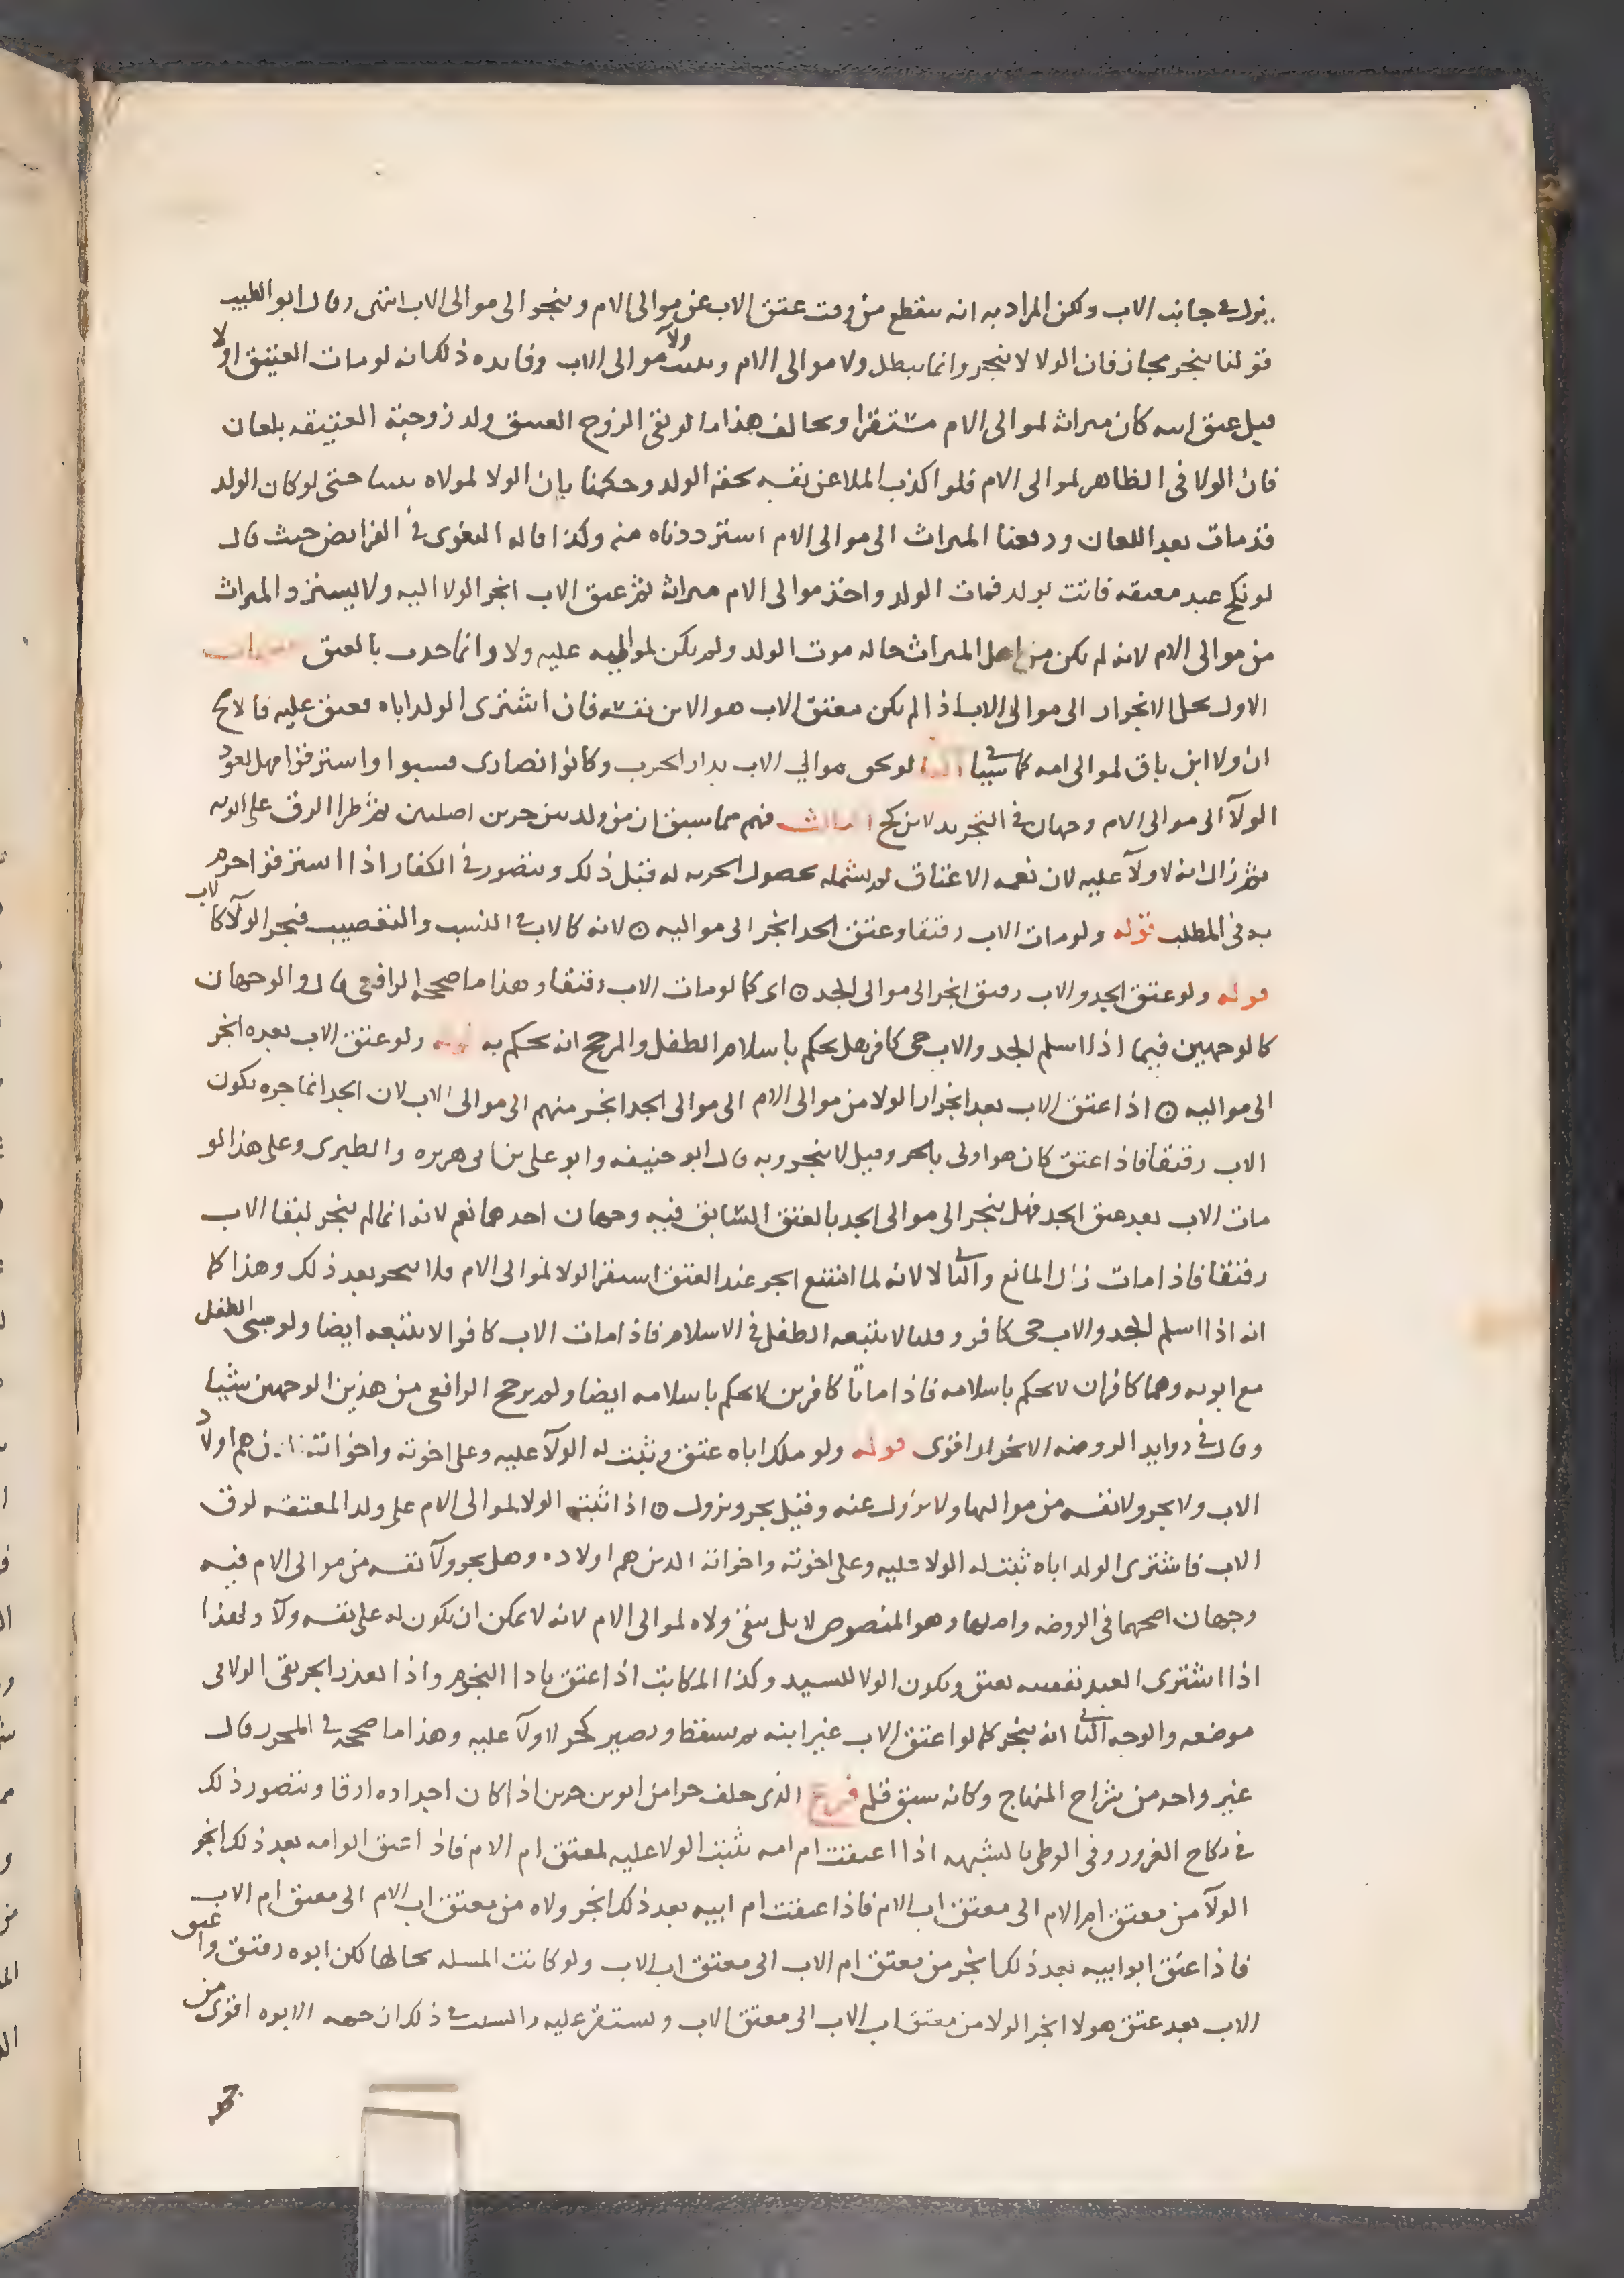 يزل في جانب الاب ولكن المراد به انه ينقطع من وقت عتق الاب عن موالي الام وينجر الى موالي الاب انتهى وقال ابو الطيب
قولنا ينجر مجاز فان الولا لا ينجر وانما يبطل ولا موالي الام ويثبت ولآ موالي الاب وفايده ذلك انه لو مات العتيق اولا
قبل عتق ابيه كان ميراثه لموالي الام مستقرا ويخالف هذا ما لو نفى الزوج العتيق ولد زوجته العتيقه بلعان
فان الولا في الظاهر لموالي الام فلو اكذب الملاعن نفسه لحقه الولد وحكمنا بان الولا لمولاه حتى لو كان الولد
قد مات بعد اللعان ودفعنا الميراث الى موالي الام استرددناه منه وكذا قاله البغوى في الفرايض حيث قال
لو نكح عبد معتقه فاتت بولد فمات الولد واخذ موالي الام ميراثه ثم عتق الاب انجر الولا اليه ولا يسترد الميراث
من موالي الام لانه لم يكن من اهل الميراث حاله موت الولد ولم يكن لمواليه عليه ولا وانما حدث بالعتق
الاول محل الانجرار الى موالي الاب اذا لم يكن معتق الاب هو الابن نفسه فان اشترى الولد اباه فعتق عليه فالاصح
ان ولا ابن باق لموالي امه كما سياتي لو لحق موالي الاب بدار الحرب وكانوا نصارى فسبوا واسترقوا فهل يعود
الولآ الى موالي الام وجهان في التجريد لابن كج الثالث فهم مما سبق ان من ولد بين حرين اصليين ثم طرا الرق على ابويه
ثم زال انه لا ولآ عليه لان نعمه الاعتاق لم يشمله لحصول الحريه له قبل ذلك ويتصور في الكفار اذا استرقوا
به في المطلب قوله ولو مات الاب رقيقا وعتق الجد انجر الى مواليه ۞ لانه كالاب في النسب والتعصيب فيجر الولآ كالاب
قوله ولو عتق الجد والاب رقيق انجر الى موالي الجد ۞ اى كما لو مات الاب رقيقا وهذا ما صححه الرافعى قال والوجهان
كالوجهين فيما اذا اسلم الجد والاب حى كافر هل يحكم باسلام الطفل والمرجح انه يحكم به قوله ولو عتق الاب بعده انجر
الى مواليه ۞ اذا عتق الاب بعد انجرار الولا من موالي الام الى موالي الجد انجر منهم الى موالي الاب لان الجد انما جره لكون
الاب رقيقا فاذا عتق كان هو اولى بالجر وقيل لا ينجر وبه قال ابو حنيفه وابو على بن ابى هريره والطبرى وعلى هذا لو
مات الاب بعد عتق الجد فهل ينجر الى موالي الجد بالعتق السابق فيه وجهان احدهما نعم لانه انما لم ينجر لبقا الاب
رقيقا فاذا مات زال المانع والثاني لا لانه لما امتنع الجر عند العتق استقر الولا لموالي الام فلا ينجر بعد ذلك وهذا كما
انه اذا اسلم الجد والاب حى كافر وقلنا لا يتبعه الطفل في الاسلام فاذا مات الاب كافرا لا يتبعه ايضا ولو سبى الطفل
مع ابويه وهما كافران لا يحكم باسلامه فاذا ماتا كافرين لا يحكم باسلامه ايضا ولم يرجح الرافعى من هذين الوجهين شيا
وقال في زوايد الروضه الانجرار اقوى قوله ولو ملك اباه عتق وثبت له الولآ عليه وعلى اخوته واخواته الذين هم اولاد
الاب ولا يجر ولا نفسه من مواليها ولا يزول عنه وقيل يجر ويزول ۞ اذا ثبت الولا لموالي الام على ولد المعتقه لرق
الاب فاشترى الولد اباه ثبت له الولا عليه وعلى اخوته واخواته الذين هم اولاده وهل يجر ولآ نفسه من موالي الام فيه
وجهان اصحهما في الروضه واصلها وهو المنصوص لا بل يبقى ولاه لموالي الام لانه لا يمكن ان يكون له على نفسه ولآ ولهذا
اذا اشترى العبد نفسه يعتق ويكون الولا للسيد وكذا المكاتب اذا عتق باداا النجوم واذا تعذر الجر بقى الولا في
موضعه والوجه الثاني انه ينجر كما لو اعتق الاب غير ابنه ثم يسقط ويصير كحر لا ولآ عليه وهذا ما صححه في المحرر قال
غير واحد من شراح المنهاج وكانه سبق قلم فرع الذى خلف حرا من ابوين حرين اذا كان اجداده ارقا ويتصور ذلك
في نكاح الغرور وفى الوطى بالشبهه اذا اعتقت ام امه ثبت الولا عليه لمعتق ام الام فاذا اعتق ابو امه بعد ذلك انجر
الولآ من معتق ام الام الى معتق اب الام فاذا عتقت ام ابيه بعد ذلك انجر ولاه من معتق اب الام الى معتق ام الاب
فاذا عتق ابو ابيه بعد ذلك انجر من معتق ام الاب الى معتق اب الاب ولو كانت المسله بحالها لكن ابوه رقيق وا عتق
الاب بعد عتق هولا انجر الولا من معتق اب الاب الى معتق الاب ويستقر عليه والسبب في ذلك ان جهه الابوه اقوى من
جهه